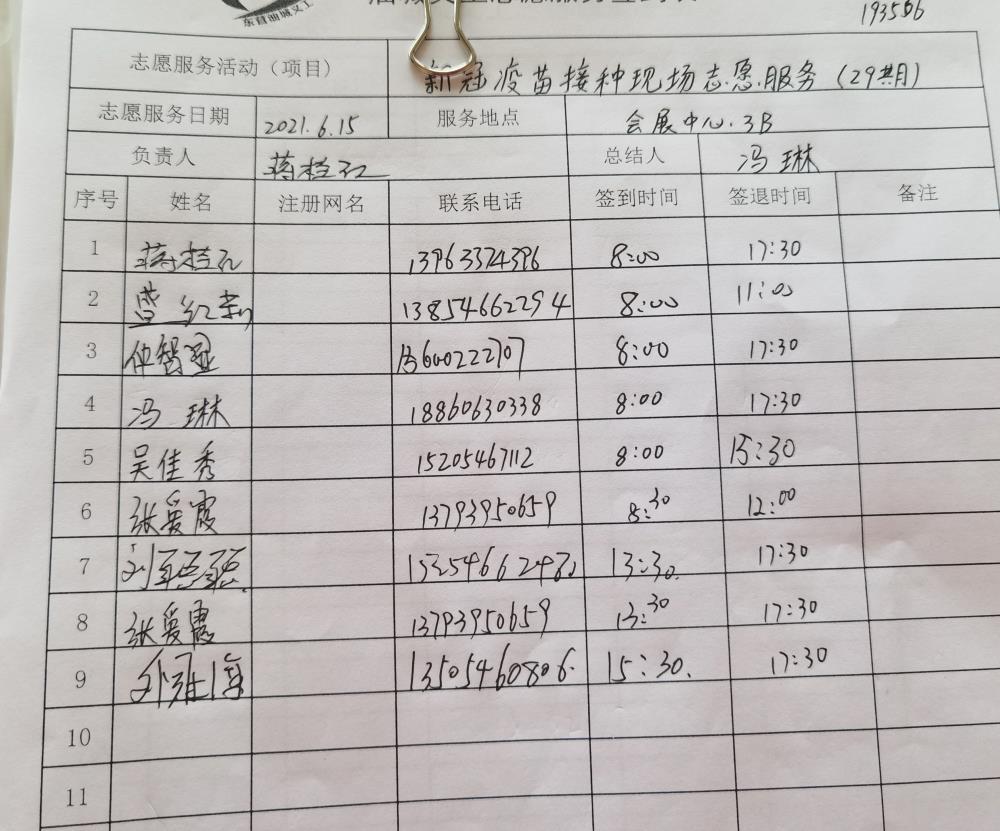 东营油城义工
193506
志愿服务活动（项目） 新冠疫苗接种现场志愿服务（29期）
志愿服务日期 2021.6.15 服务地点 会展中心.3B
负责人 总结人 冯琳
序号 姓名 注册网名 联系电话 签到时间 签退时间 备注
1 8:00 17:30
2 13854662294 8:00 11:00
3 13600222707 8:00 17:30
4 冯琳 18860630338 8:00 17:30
5 吴佳秀 15205467112 8:00 15:30
6 张爱霞 13793950659 8:30 12:00
7 13:30. 17:30
8 张爱霞 13793950659 13:30 17:30
9 13505460806. 15:30. 17:30
10
11